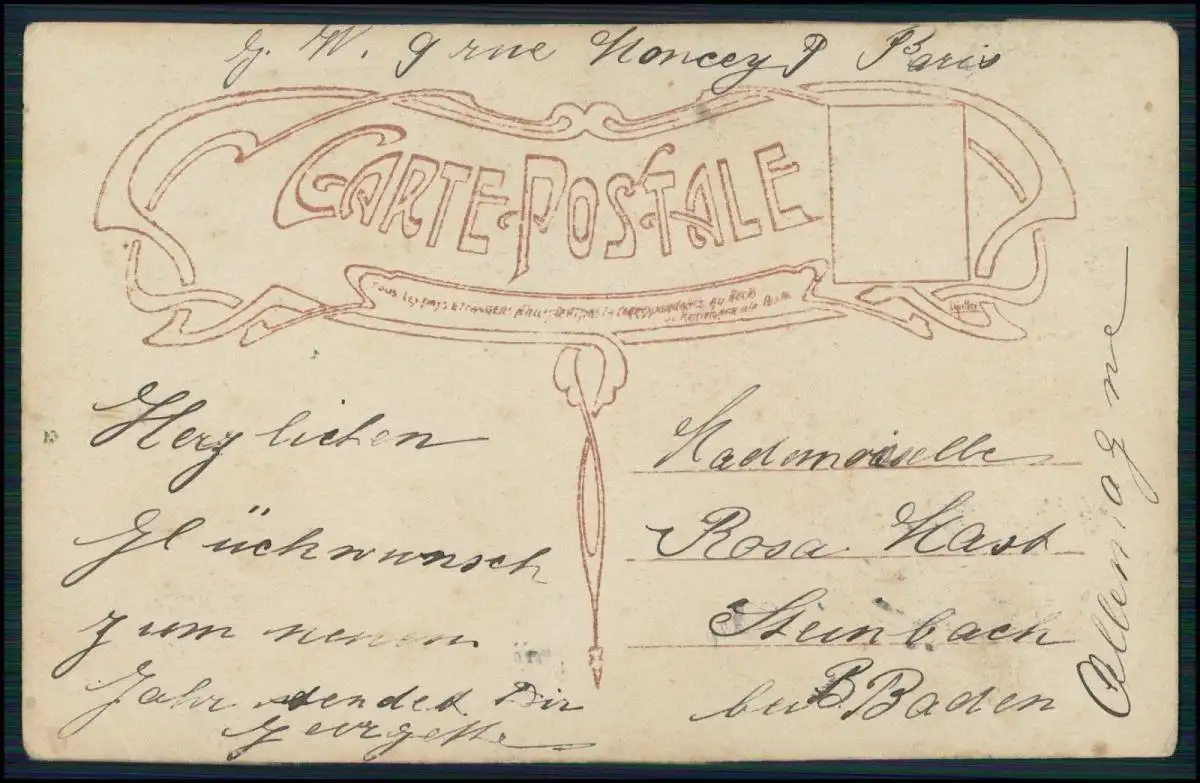 G. W. 9 rue Moncey P Paris
CARTE-POSTALE
Tous les pays étrangers n'acceptent pas la correspondance au recto
Herzlichen
Glückwunsch
zum neuen
Jahr sendet Dir
Georgette
Mademoiselle
Rosa Hast
Steinbach
bei B Baden
Allemagne